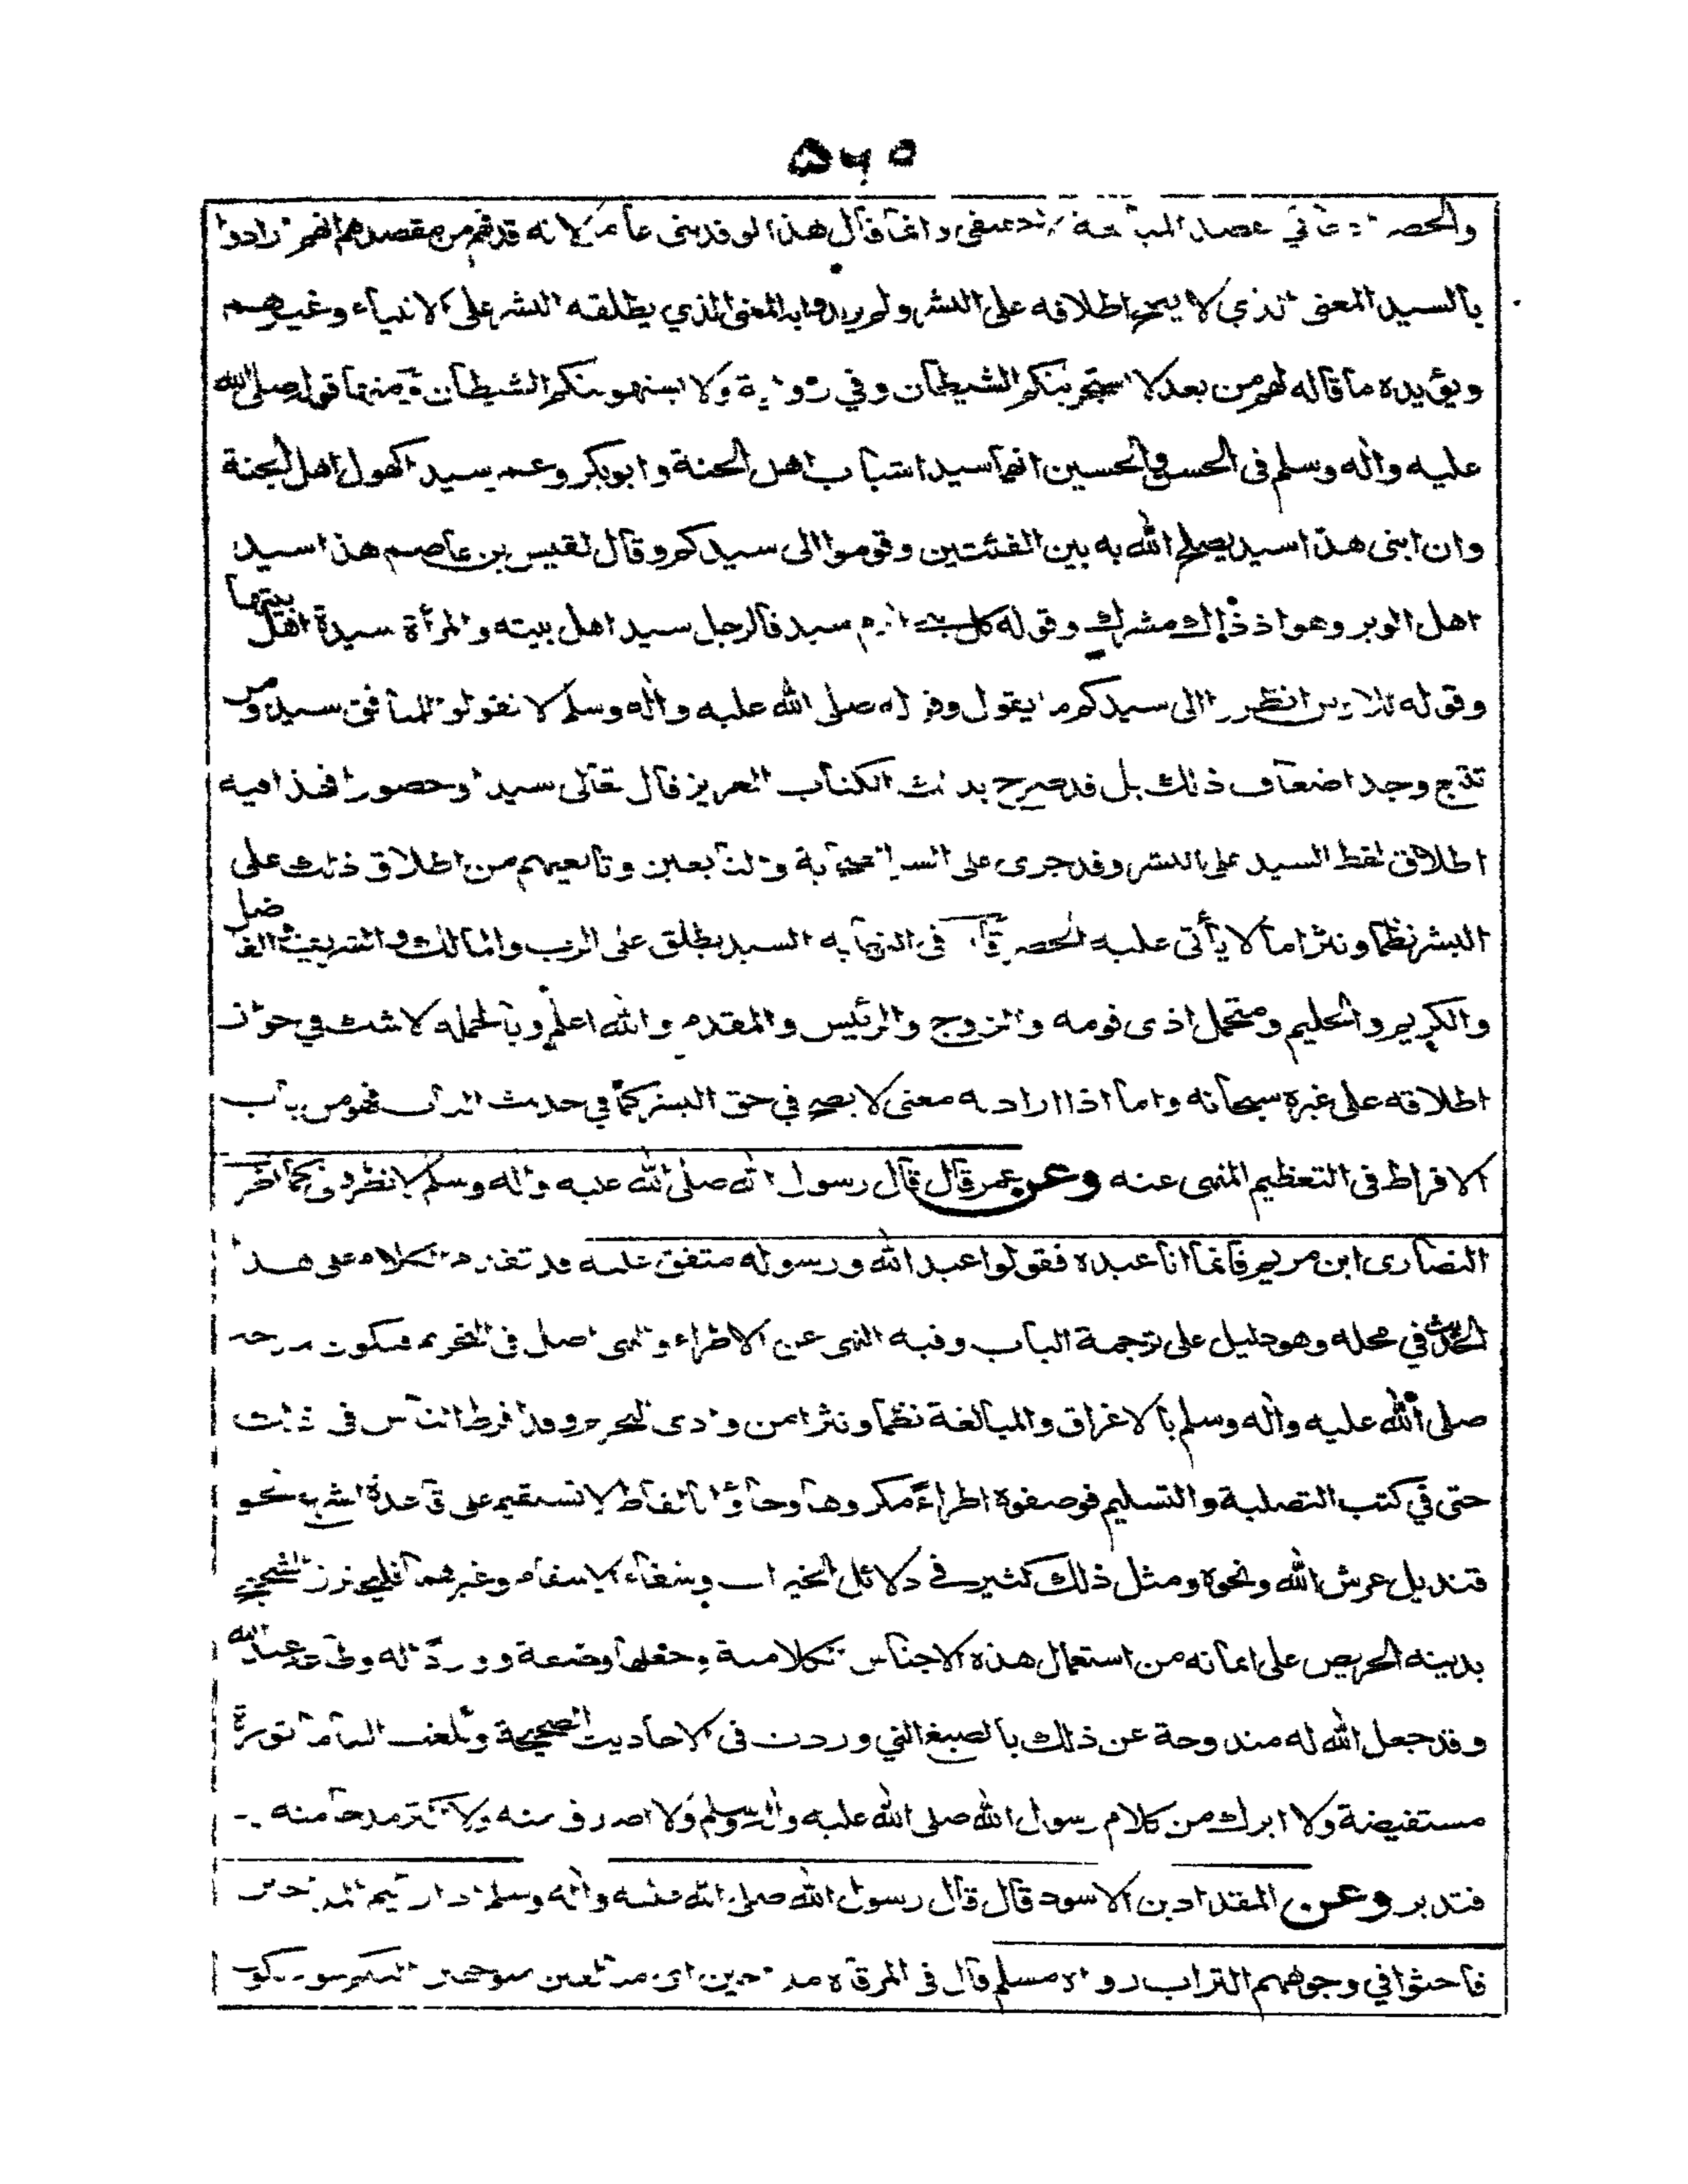 ۵۶۵
والحصر ادعائي قصد المبالغة وانما قال هذا لوفد بني عامر لانه قد فهم من مقصدهم انهم ارادوا
بالسيد المعنى الذي لا يصح اطلاقه على البشر ولم يريدوا به المعنى الذي يطلقه البشر على الانبياء وغيرهم
ويؤيده ما قاله لهم من بعد لا يستجرينكم الشيطان وفي رواية ولا يستهوينكم الشيطان ومنها قوله صلى الله
عليه واٰله وسلم في الحسن والحسين انهما سيدا شباب اهل الجنة وابوبكر وعمر سيدا كهول اهل الجنة
وان ابنى هذا سيد يصلح الله به بين الفئتين وقوموا الى سيدكم وقال لقيس بن عاصم هذا سيد
اهل الوبر وهو اذ ذالك مشرك وقوله كل بني ادم سيد فالرجل سيد اهل بيته والمرأة سيدة اهل بيتها
وقوله انظروا الى سيدكم ما يقول وقوله صلى الله عليه واٰله وسلم لا تقولوا للمنافق سيد ومن
تتبع وجد اضعاف ذلك بل قد صرح بذلك الكتاب العزيز قال تعالى سيدا وحصورا فهذا فيه
اطلاق لفظ السيد على البشر وقد جرى على السنة الصحابة والتابعين وتابعيهم من اطلاق ذلك على
البشر نظما ونثرا ما لا يأتى عليه الحصر قال في النهاية السيد يطلق على الرب والمالك والشريف والفاضل
والكريم والحليم ومتحمل اذى قومه والزوج والرئيس والمقدم والله اعلم وبالجمله لا شك في جواز
اطلاقه على غيره سبحانه واما اذا اراد به معنى لا يصح في حق البشر كما في حديث الباب فهو من باب
الافراط في التعظيم المنهى عنه وعن عمر قال قال رسول الله صلى الله عليه واٰله وسلم لا تطروني كما اطرت
النصارى ابن مريم فانما انا عبده فقولوا عبد الله ورسوله متفق عليه قد تقدم الكلام على هذا
الحديث في محله وهو دليل على ترجمة الباب وفيه النهى عن الاطراء والنهى اصل في التحريم فيكون مدحه
صلى الله عليه واٰله وسلم بالاغراق والمبالغة نظما ونثرا من وادى التحريم وقد افرط الناس في ذلك
حتى في كتب التصلية والتسليم فوصفوه اطراءً مكروها وجاؤا بالفاظ لا تستقيم على قاعدة الشرع نحو
قنديل عرش الله ونحوه ومثل ذلك كثير في دلائل الخيرات وشفاء الاسقام وغيرهما فليحترز الشحيح
بدينه الحريص على ايمانه من استعمال هذه الاجناس الكلامية
وقد جعل الله له مندوحة عن ذلك بالصيغ التي وردت في الاحاديث الصحيحة وبلغت الينا ماثورة
مستفيضة ولا ابرك من كلام رسول الله صلى الله عليه واٰله وسلم ولا اصدق منه ولا اكثر مدحا منه
فتدبر وعن المقداد بن الاسود قال قال رسول الله صلى الله عليه واٰله وسلم اذا رايتم المداحين
فاحثوا في وجوههم التراب رواه مسلم قال في المرقاة مداحين اى مبالغين